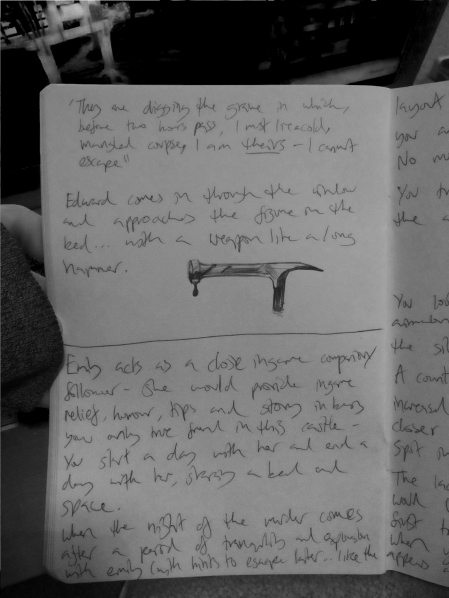 "They are digging the grave in which,
before two hours pass, I must lie a cold,
mangled corpse, I am theirs - I cannot
escape"
Edward comes in through the window
and approaches the figure on the
bed... with a weapon like a long
hammer.
Emily acts as a close ingame companion/
follower - She would provide ingame
relief, humour, tips and story in being
your only true friend in this castle -
You start a day with her and end a
day with her, sharing a bed and
space.
When the night of the murder comes
after a period of tranquility and exploration
with emily (with hints to escape later... like the
layout
you
No
You
the
You
the
A
increased
closer
spit
The
world
first
when
appears